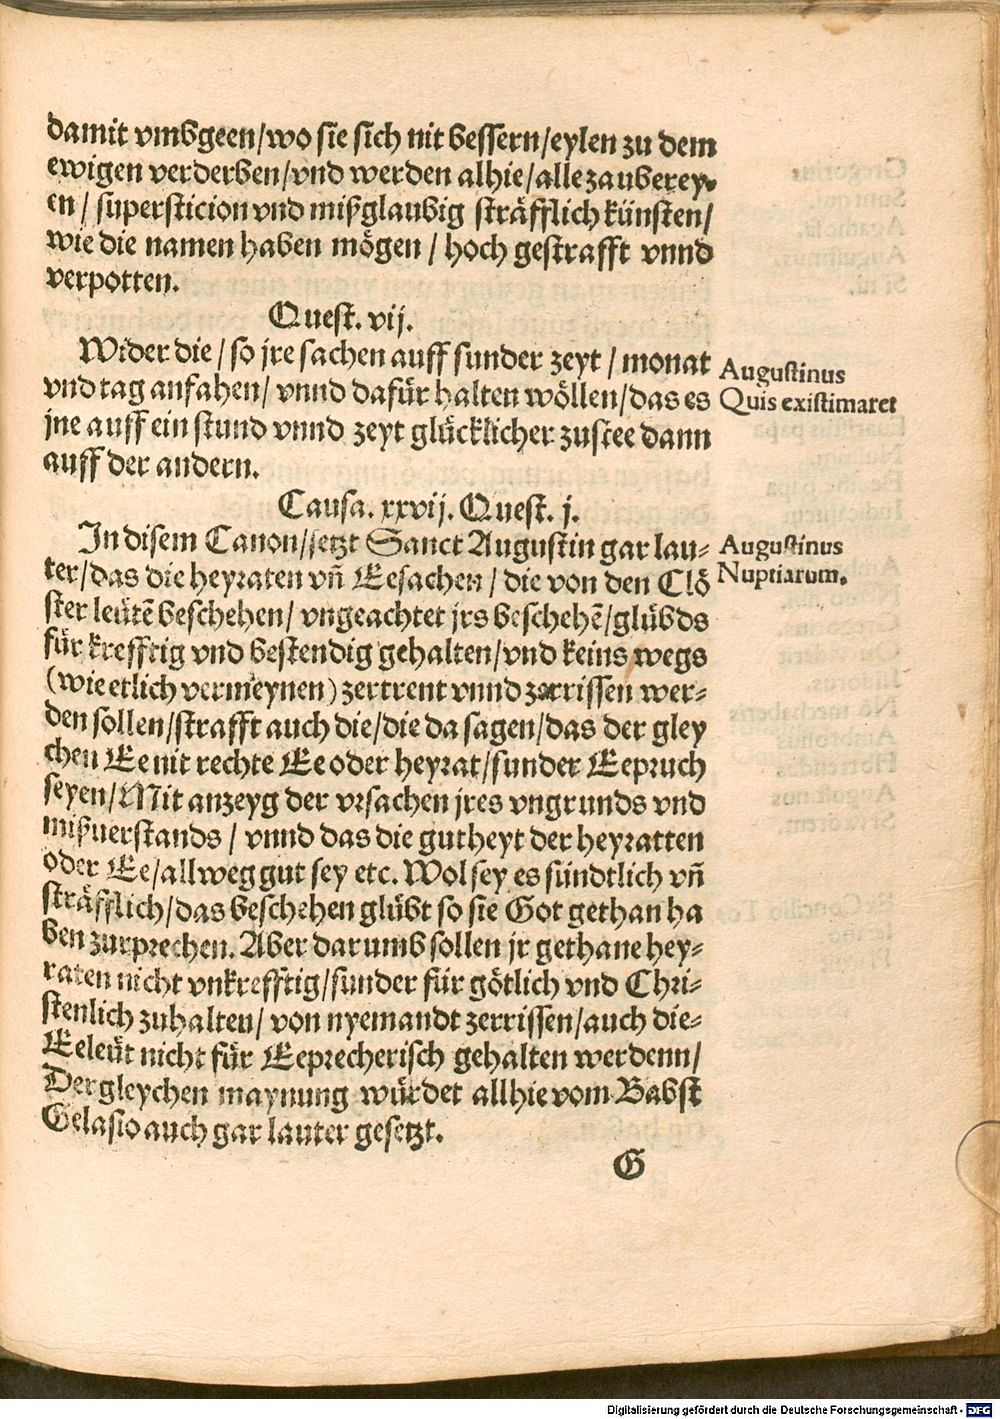 damit vmbgeen/wo sie sich nit bessern/eylen zu dem
ewigen verderben/vnd werden alhie/alle zauberey-
en/ supersticion vnd mißglaubig sträfflich künsten/
wie die namen haben mögen/ hoch gestrafft vnnd
verpotten.
Quest. vij.
Wider die/ so jre sachen auff sunder zeyt/ monat
vnd tag anfahen/ vnnd dafür halten wöllen/das es
jne auff ein stund vnnd zeyt glücklicher zustee dann
auff der andern.
Augustinus
Quis existimaret
Causa. xxvij. Quest. j.
In disem Canon/setzt Sanct Augustin gar lau-
ter/das die heyraten vñ Eesachen/ die von den Clö
ster leütē beschehen/ vngeachtet jrs beschehē/glübds
für krefftig vnd bestendig gehalten/vnd keins wegs
(wie etlich vermeynen) zertrent vnnd zerrissen wer-
den sollen/strafft auch die/die da sagen/das der gley
chen Ee nit rechte Ee oder heyrat/sunder Eepruch
seyen/Mit anzeyg der vrsachen jres vngrunds vnd
mißuerstands/ vnnd das die gutheyt der heyratten
oder Ee/allweg gut sey etc. Wol sey es sündtlich vñ
sträfflich/das beschehen glübt so sie Got gethan ha
ben zurprechen. Aber darumb sollen jr gethane hey-
raten nicht vnkrefftig/sunder für götlich vnd Chri-
stenlich zuhalten/ von nyemandt zerrissen/auch die-
Eeleüt nicht für Eeprecherisch gehalten werdenn/
Dergleychen maynung würdet allhie vom Babst
Gelasio auch gar lauter gesetzt.
Augustinus
Nuptiarum.
G
Digitalisierung gefördert durch die Deutsche Forschungsgemeinschaft - DFG